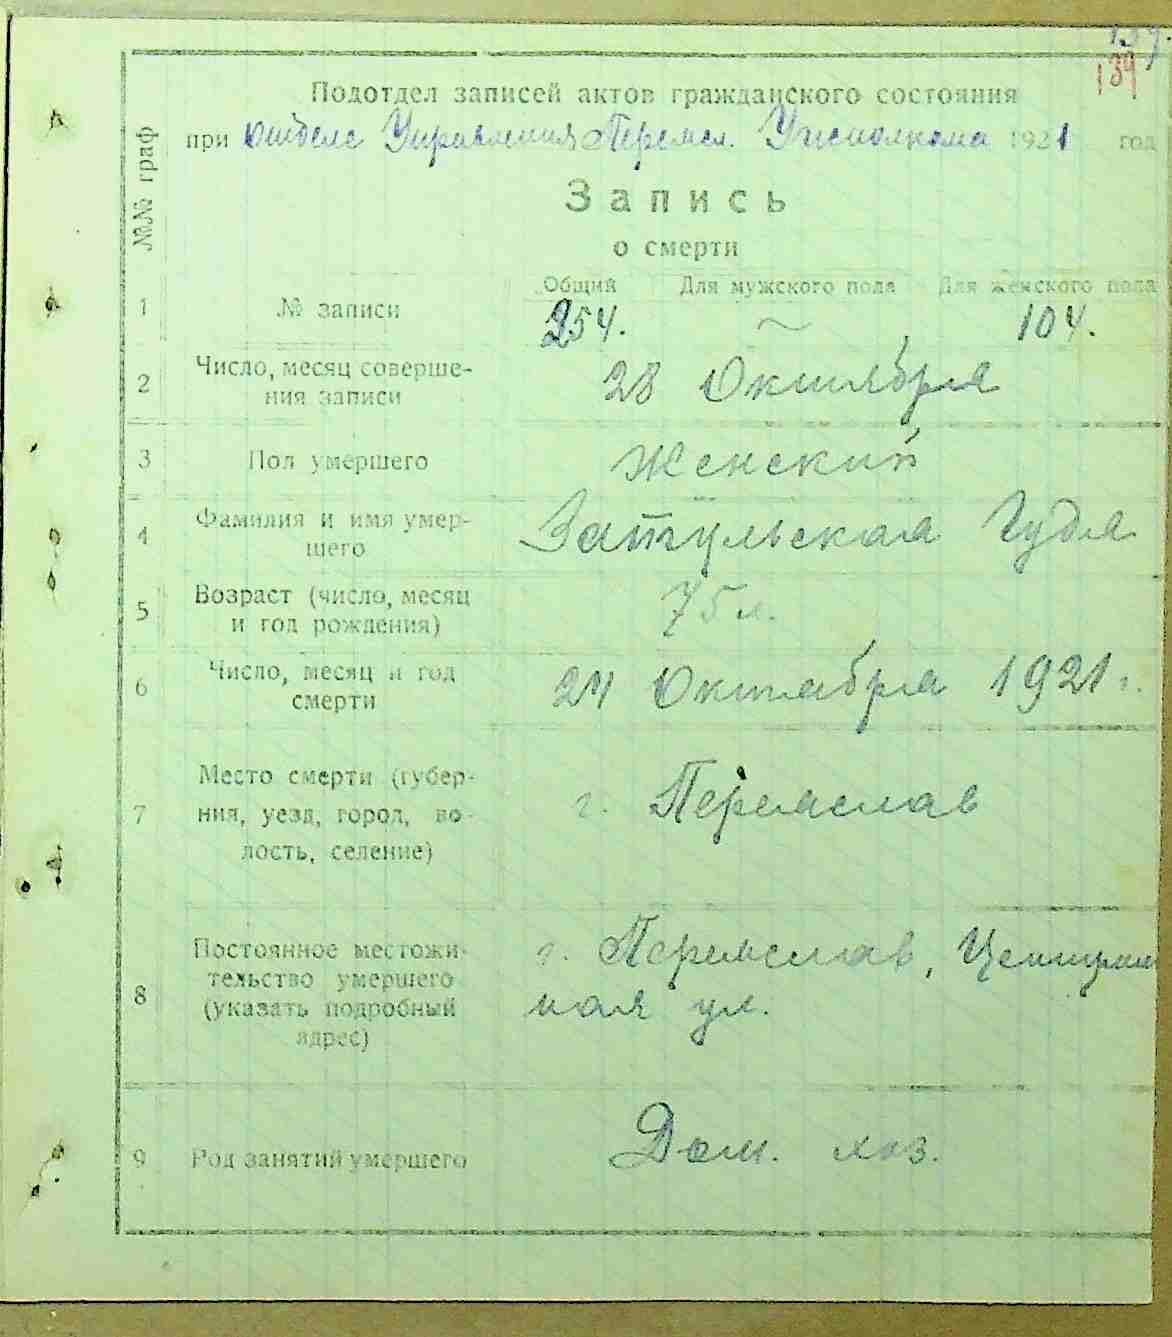 139
Подотдел записей актов гражданского состояния
при Отделе Управления Перемсл. Уисполкома 1921 год
Запись
о смерти
№№ граф
Общий Для мужского пола Для женского пола
1 № записи 254. 104.
2 Число, месяц соверше-
ния записи
28 Октября
3 Пол умершего Женский
4 Фамилия и имя умер-
шего
Затульская Гудля
5 Возраст (число, месяц
и год рождения)
75 л.
6 Число, месяц и год
смерти
24 Октабра 1921 г.
7 Место смерти (губер-
ния, уезд, город, во-
лость, селение)
г. Перемслав
8 Постоянное местожи-
тельство умершего
(указать подробный
адрес)
г. Перемслав, Централь
ная ул.
9 Род занятий умершего Дом. хоз.